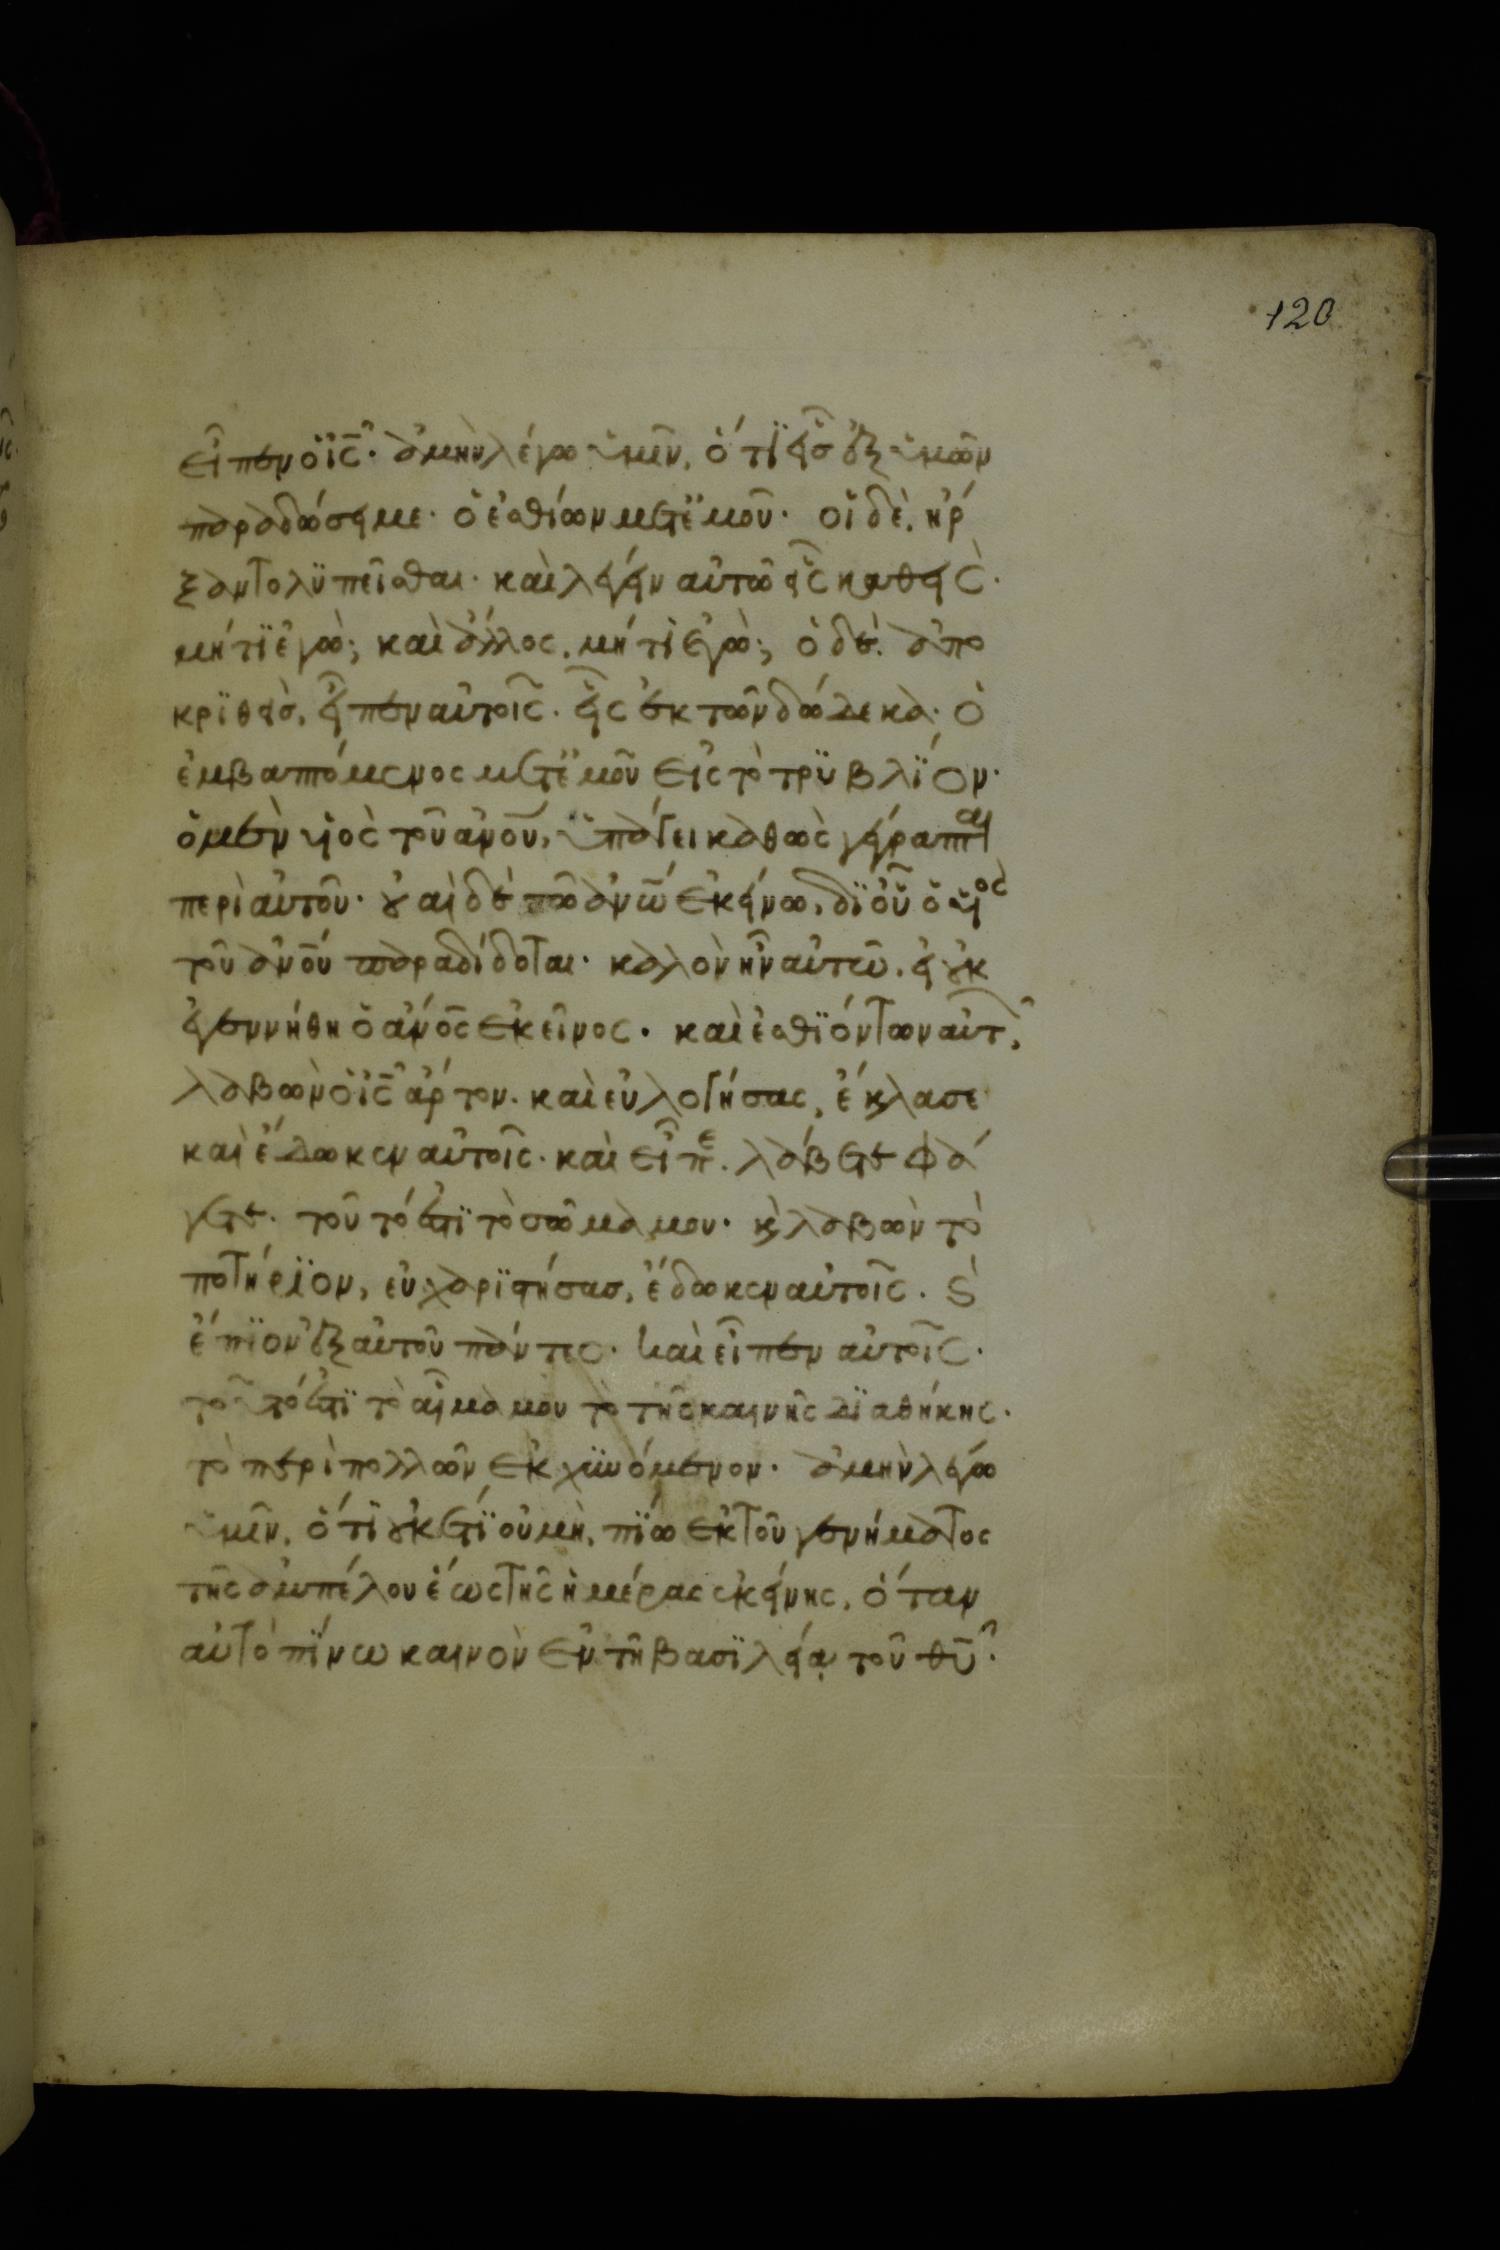 120
εἶπεν ὁ ἰς̅· ἀμὴν λέγω ὑμῖν, ὅτϊ εἷσ ἐξ ὑμῶν
παραδώσει με· ὁ ἐσθίων μετ ἐμοῦ· οἱ δὲ, ἤρ
ξαντο λϋπεῖσθαι· καὶ λέγειν αὐτῶ εἷς καθεὶς·
μή τϊ ἐγὼ; καὶ ἄλλος, μή τὶ ἐγὼ; ὁ δὲ. ἀπο
κρϊθεὶσ, εἶπεν αὐτοῖς. εἷς ἐκ τῶν δώδεκα· ὁ
ἐμβαπτόμενος μετ ἐμοῦ εἰς τὸ τρϋβλΐον·
ὁ μὲν υἱὸς τοῦ ἀνου̅, ὑπάγει καθὼς γέγραπται
περὶ αὐτοῦ· οὐαὶ δὲ τῶ ἀνω̅ ἐκείνω, δϊ οὗ ὁ υἱὸς
τοῦ ἀνου̅ παραδίδοται· καλὸν ἦν αὐτῶ, εἰ οὐκ
ἐγεννήθη ὁ ἀνος̅ ἐκεῖνος· καὶ ἐσθϊόντων αὐτ,
λαβὼν ὁ ἰς̅ ἄρτον. καὶ εὐλογήσας, ἔκλασε
καὶ ἔδωκεν αὐτοῖς· καὶ εἶπε. λάβετε φά
γετε· τοῦτό ἐστϊ τὸ σῶμα μου· κὶ λαβὼν τὸ
ποτήρϊον, εὐχαρϊστήσασ, ἔδωκεν αὐτοῖς. κὶ
ἔπϊον ἐξ αὐτοῦ πάντες· καὶ εἶπεν αὐτοῖς·
τοῦτό ἐστϊ τὸ αἷμα μου τὸ τῆς καινῆς δϊαθήκης·
τὸ περὶ πολλῶν ἐκχϋνόμενον· ἀμὴν λέγω
ὑμῖν, ὅτι οὐκέτϊ οὐ μὴ, πΐω ἐκ τοῦ γενήματος
τῆς ἀμπέλου ἕως τῆς ἡμέρας ἐκείνης, ὅταν
αὐτὸ πΐνω καινὸν ἐν τῆ βασϊλεία τοῦ θυ̅·